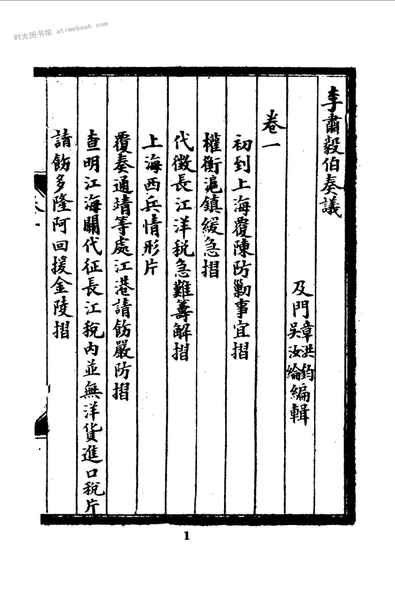 时光图书馆 alimebook.com
李肅毅伯奏議
及門章洪鈞吳汝綸編輯
卷一
初到上海覆陳防勦事宜摺
權衡滬鎮緩急摺
代徵長江洋稅急難籌解摺
上海西兵情形片
覆奏通靖等處江港請飭嚴防摺
查明江海關代征長江稅內並無洋貨進口稅片
請飭多隆阿回援金陵摺
1